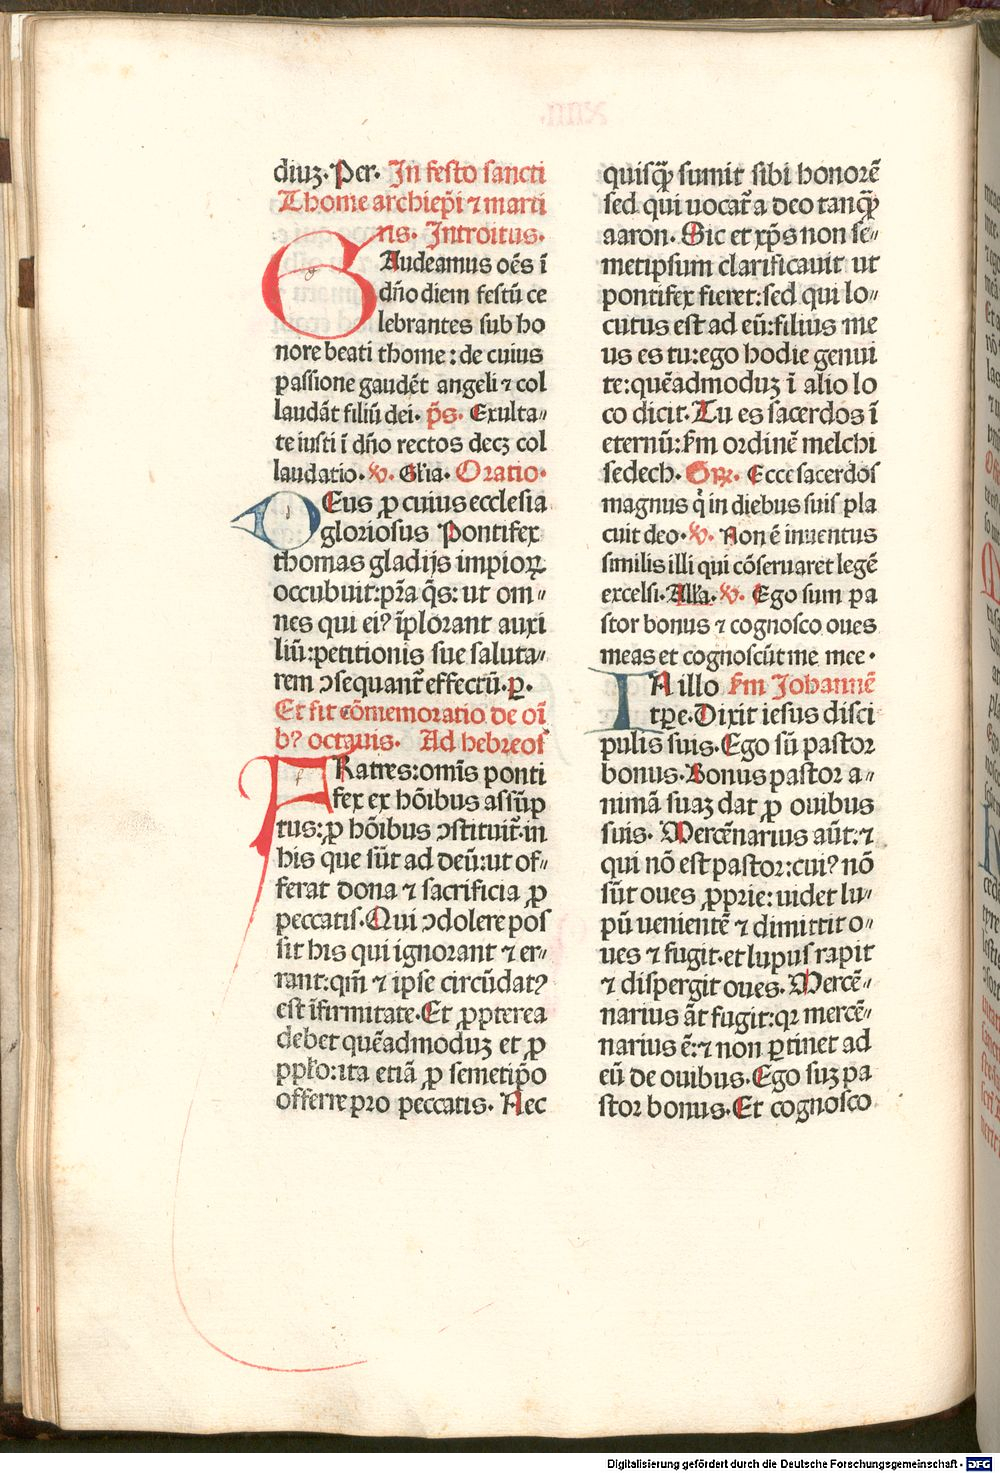 diuꝫ. Per. In festo sancti
Thome archiep̄i ⁊ marti
ris. Introitus.
GAudeamus oēs ī
dn̄o diem festū ce
lebrantes sub ho
nore beati thome: de cuius
passione gaudēt angeli ⁊ col
laudāt filiū dei. p̄s. Exulta〃
te iusti ī dn̄o rectos decꝫ col
laudatio. v̄. Gl̄ia. Oratio.
DEus ꝓ cuius ecclesia
gloriosus Pontifex
thomas gladijs impioꝝ
occubuit: p̄ra q̄s: ut om〃
nes qui eiꝰ īplorant auxi
liū: petitionis sue saluta〃
rem ꝯsequant᷑ effectū. ꝑ.
Et fit cōmemoratio de oī
bꝰ octauis. Ad hebreos
FRatres: omīs ponti
fex ex hōibus assūp
tus: ꝓ hōibus ꝯstituit᷑. in
his que sūt ad deū: ut of〃
ferat dona ⁊ sacrificia ꝓ
peccatis. Qui ꝯdolere pos
sit his qui ignorant ⁊ er〃
rant: qm̄ ⁊ ipse circūdatꝰ
est īfirmitate. Et ꝓpterea
debet quēadmoduꝫ et ꝓ
pp̄lo: ita etiā ꝓ semetip̄o
offerre pro peccatis. Nec
quisꝙ̄ sumit sibi honorē
sed qui uocat᷑ a deo tanꝙ̄
aaron. Sic et xp̄s non se〃
metipsum clarificauit ut
pontifex fieret: sed qui lo〃
cutus est ad eū: filius me
us es tu: ego hodie genui
te: quēadmoduꝫ ī alio lo
co dicit. Tu es sacerdos ī
eternū: km̄ ordinē melchi
sedech. Gr̄. Ecce sacerdos
magnus q̇ in diebus suis pla
cuit deo. v̄. Non ē inuentus
similis illi qui cōseruaret legē
excelsi. All'a. v̄. Ego sum pa
stor bonus ⁊ cognosco oues
meas et cognoscūt me mee.
IN illo km̄ Johannē
tp̄e. Dixit iesus disci
pulis suis. Ego sū pastor
bonus. Bonus pastor a〃
nimā suaꝫ dat ꝓ ouibus
suis. Mercēnarius aūt: ⁊
qui nō est pastor: cuiꝰ nō
sūt oues ꝓprie: uidet lu〃
pū uenientē ⁊ dimittit o〃
ues ⁊ fugit. et lupus rapit
⁊ dispergit oues. Mercē〃
narius āt fugit: qꝛ mercē〃
narius ē: ⁊ non ꝑtinet ad
eū de ouibus. Ego suꝫ pa
stor bonus. Et cognosco
Digitalisierung gefördert durch die Deutsche Forschungsgemeinschaft - DFG